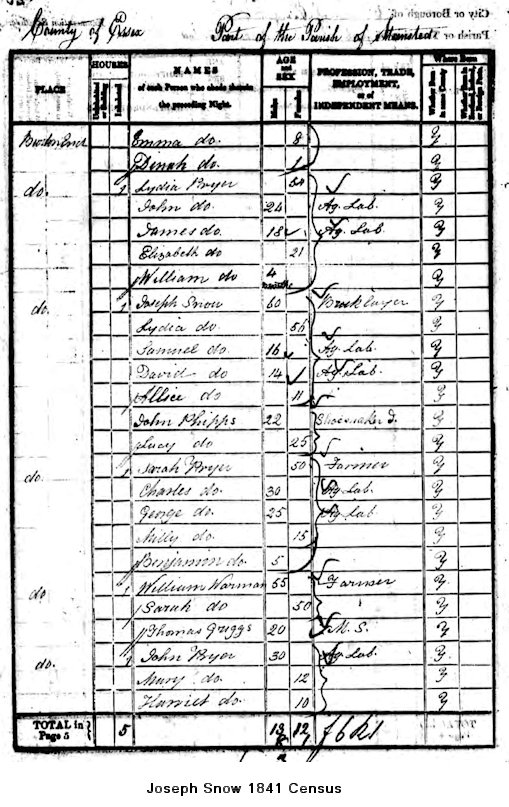 County of Essex Part of the Parish of
City or Borough of
Parish or
PLACE
HOUSES
Uninhabited or Building
Inhabited
NAMES
of each Person who abode therein the preceding Night.
AGE and SEX
Males
Females
PROFESSION, TRADE, EMPLOYMENT, or of INDEPENDENT MEANS.
Where Born
Whether Born in same County
Whether Born in Scotland, Ireland, or Foreign Parts.
Emma do. 8 Y
Dinah do. 1 Y
do. 1 Lydia Pryer 54 Y
John do. 24 Ag. Lab. Y
James do. 18 Ag. Lab. Y
Elizabeth do 21 Y
William do 4 months Y
do. 1 Joseph Snow 60 Bricklayer Y
Lydia do. 56 Y
Samuel do. 16 Ag. Lab. Y
David do. 14 Ag. Lab. Y
Allice do 11 Y
John Phipps 22 Shoemaker J. Y
Lucy do 25 Y
do. 1 Sarah Pryer 50 Farmer Y
Charles do. 30 Ag. Lab. Y
George do. 25 Ag. Lab Y
Milly do. 15 Y
Benjamin do. 5 Y
do 1 William Warman 55 Farmer Y
Sarah do 50 Y
Thomas Griggs 20 M. S. Y
do. 1 John Pryer 30 Ag. Lab. Y
Mary do. 12 Y
Harriet do. 10 Y
TOTAL in Page 5 5 13 12
Joseph Snow 1841 Census